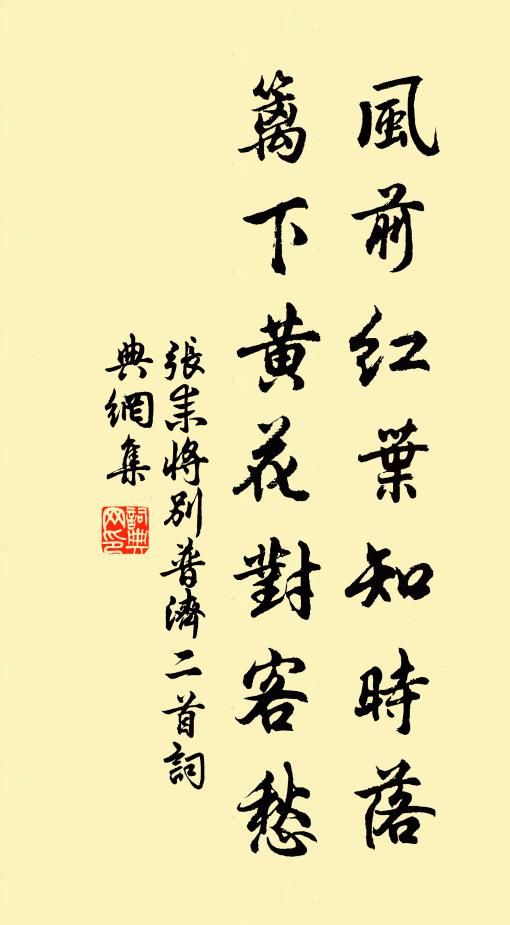 風前紅葉知時落
籬下黃花對客愁
張耒將別普濟二首詞
典網集
詞典網印